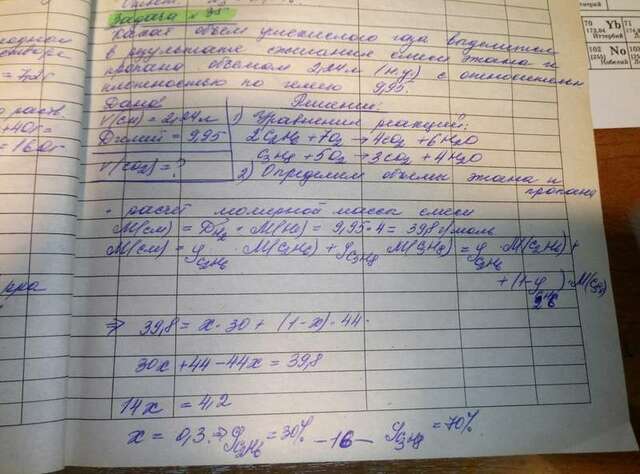 Задача №35
Какой объём углекислого газа выделится
в результате сжигания смеси этана и
пропана объёмом 2,24л (н.у.) с относительной
плотностью по гелию 9,95.
Дано: Решение:
V(см) = 2,24л 1) Уравнения реакций:
Dгелий = 9,95 2C2H6 + 7O2 → 4CO2 + 6H2O
C3H8 + 5O2 → 3CO2 + 4H2O
V(CO2) = ? 2) Определим объёмы этана и
пропана
• расчёт молярной массы смеси
M(см) = DH2 · M(He) = 9,95 · 4 = 39,8 г/моль
M(см) = φC2H6 · M(C2H6) + φC3H8 · M(C3H8) = φC2H6 · M(C2H6) +
+ (1-φ) · M(C3H8)
⇒ 39,8 = x · 30 + (1-x) · 44
30x + 44 - 44x = 39,8
14x = 4,2
x = 0,3 ⇒ φC2H6 = 30% φC3H8 = 70%
-16-
= 160г
70 Yb 71
173,04 174,9
Иттербий
102 No
Нобелий